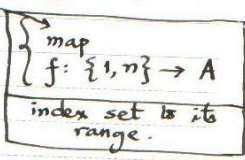 map
f: {1, n} → A
index set is its
range.